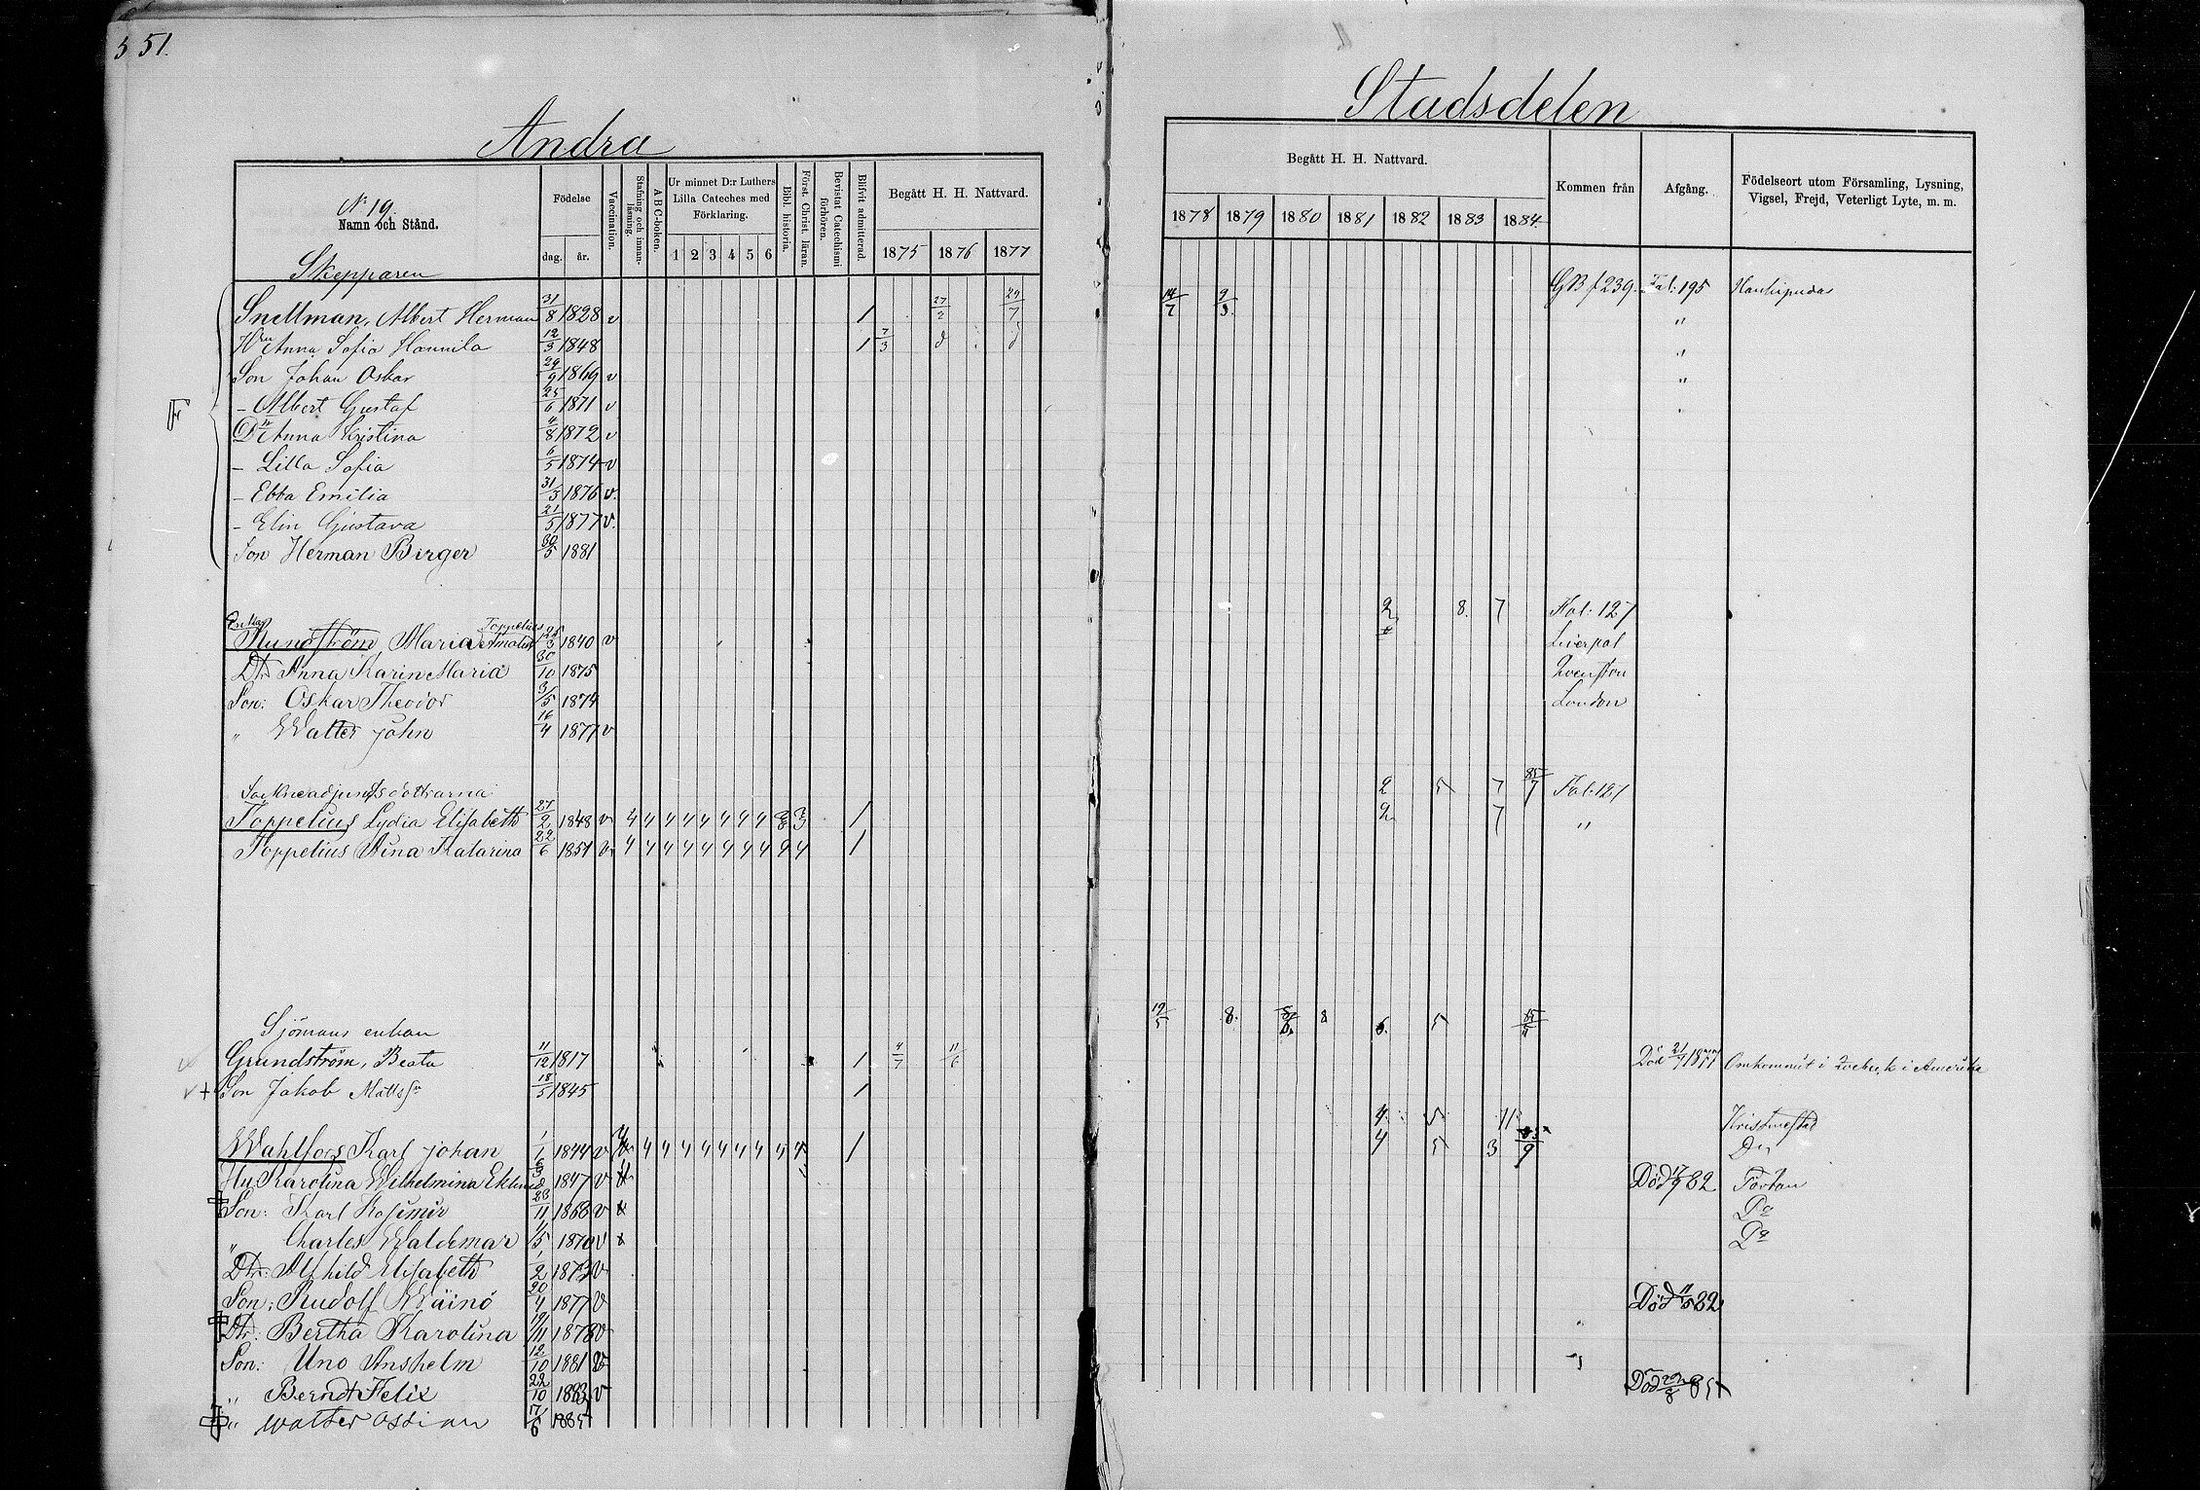 351.
Andra
Stadsdelen
No 19
Namn och Stånd.
Födelse
dag. år.
Vaccination.
Stafning och innan-läsning.
A B C-boken.
Ur minnet D:r Luthers Lilla Cateches med Förklaring.
1 2 3 4 5 6
Bibl. historia.
Först. Christ. läran.
Bevistat Catechismi förhören.
Blifvit admitterad.
Begått H. H. Nattvard.
1875 1876 1877
Begått H. H. Nattvard.
1878 1879 1880 1881 1882 1883 1884
Kommen från
Afgång.
Födelseort utom Församling, Lysning, Vigsel, Frejd, Veterligt Lyte, m. m.
Skepparen
F
Snellman, Albert Herman 31/8 1828 v 1 27/2 29/7 14/7 9/3 GB f 239. Fol. 195 Haukipudas
Hru Anna Sofia Hannila 12/3 1848 1 7/3 "
Son Johan Oskar 29/9 1869 v "
- Albert Gustaf 25/6 1871 v "
Dr Anna Kristina 4/8 1872 v
- Lilla Sofia 6/5 1874 v
- Ebba Emilia 31/3 1876 v.
- Elin Gustava 21/5 1877 v.
Son Herman Birger 30/5 1881
Enkan Toppelius
Mundström, Maria Amalia 1840 v 2 8. 7 Fol: 127
Dtr Anna Karin Maria 30/10 1875 Liverpol
Son: Oskar Theodor 31/5 1874
" Walter john 16/4 1877 v London
Toppelius Lydia Elisabeth 27/2 1848 v 4 4 4 4 4 4 4 4 3 1 2 5 7 85/7 Fol: 127
Toppelius Aina Katarina 22/6 1851 v 4 4 4 4 4 4 4 4 4 1 2 7 "
Sjömans enkan
Grundström, Beata 11/12 1817 1 4/7 11/6 19/5 8. 8 6. 5 85
v + Son Jakob Matts 18/5 1845 1 Död 21/7 1877 Omkommit i i Amerika
Wahlfors Karl johan 1/1 1844 v 4 4 4 4 4 4 4 4 1 4 5 11 Kristinestad
Hu Karolina Wilhelmina Eklund 1847 v 4 5 3 9 Do
Son: Karl Kasimir 28/11 1868 v Död 82 Förtau
" Charles Waldemar 11/5 1870 v Do
Dtr: Alfhild Elisabeth 1/2 1873 v Do
Son: Rudolf Wäinö 20/4 1877 v
Dtr: Bertha Karolina 19/11 1878 v Död 11/5 82
Son: Uno Anshelm 12/10 1881 v
" Berndt Felix 22/10 1883 v
" Walter Ossian 17/6 1885 Död 85